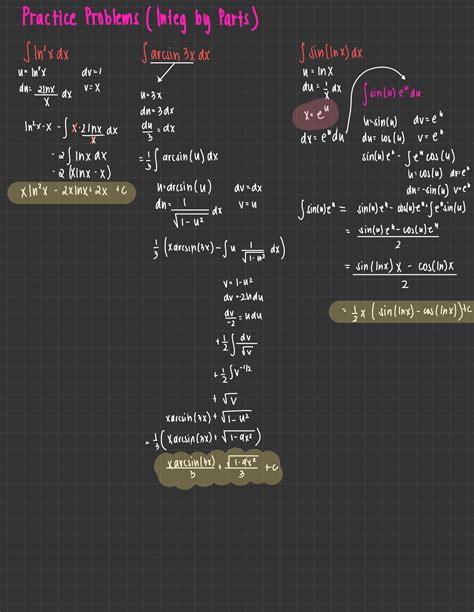 Practice Problems (Integ by Parts)
∫ln²x dx
u= ln²x dv=1
du= 2lnx/x dx v=x
ln²x·x - ∫x·2lnx/x dx
-2∫lnx dx
-2(xlnx-x)
xln²x - 2xlnx+2x +C
∫arcsin 3x dx
u=3x
du=3dx
du/3 = dx
=1/3 ∫arcsin(u) dx
u=arcsin(u) dv=dx
du= 1/√(1-u²) dx v=u
1/3 (xarcsin(3x)-∫u 1/√(1-u²) dx)
v=1-u²
dv=-2udu
dv/-2 = udu
+1/2 ∫dv/√v
+1/2 ∫v^-1/2
+√v
xarcsin(3x)+√(1-u²)
=1/3 (xarcsin(3x)+√(1-9x²))
xarcsin(3x)/3 + √(1-9x²)/3 +C
∫sin(lnx) dx
u=lnx
du= 1/x dx
x=e^u
dx=e^u du
∫sin(u) e^u du
u=sin(u) dv=e^u
du=cos(u) v=e^u
sin(u)e^u - ∫e^u cos(u)
u=cos(u) dv=e^u
du=-sin(u) v=e^u
∫sin(u)e^u = sin(u)e^u - cos(u)e^u - ∫e^u sin(u)
= sin(u)e^u - cos(u)e^u/2
= sin(lnx)x - cos(ln)x/2
= 1/2 x (sin(lnx) - cos(lnx))+C